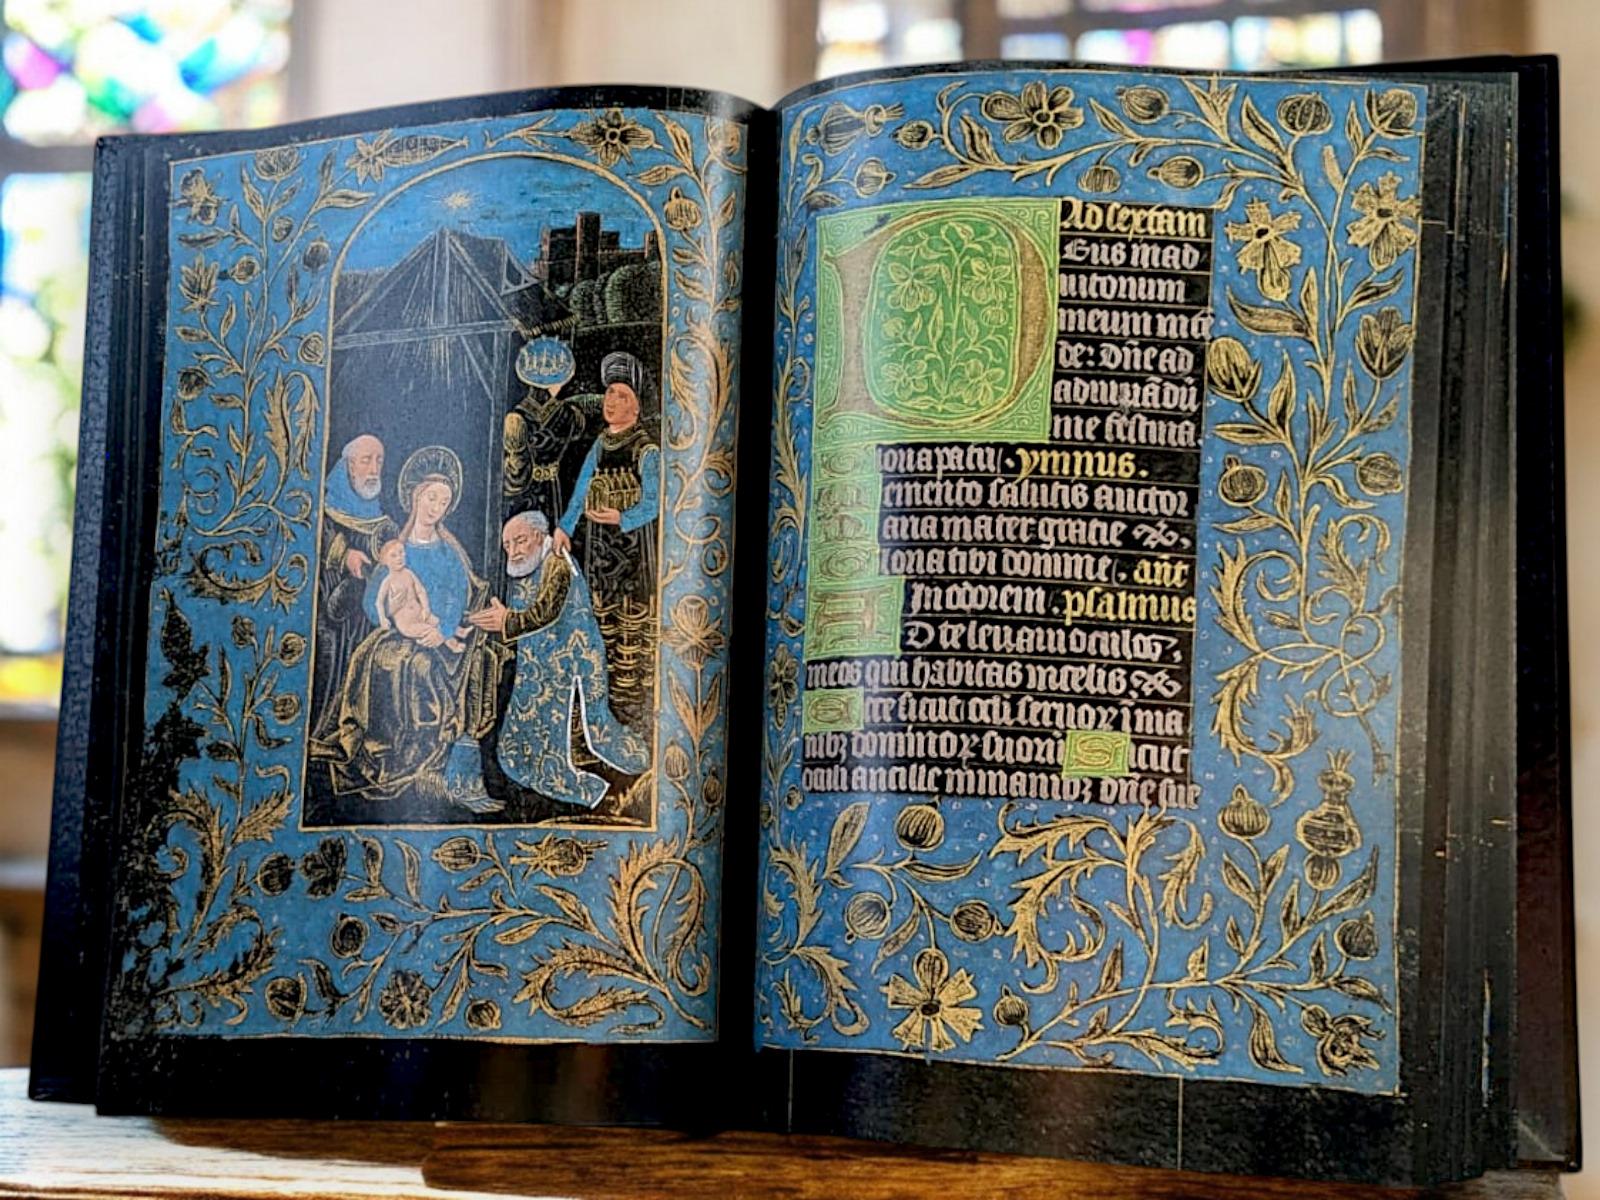 Ad sextam
Deus in ad
iutorium
meum inte
de: dñe ad
adiuuãdũ
me festina.
Gloria patri. ymnus.
Memento salutis auctor
Maria mater gratie
Gloria tibi domine. añt
In odorem. psalmus
AD te leuaui oculos
meos qui habitas in celis
Ecce sicut oculi seruoꝝ ĩ ma
nibꝫ dominoꝝ suoꝝ Sicut
oculi ancille in manibꝫ dñe sue